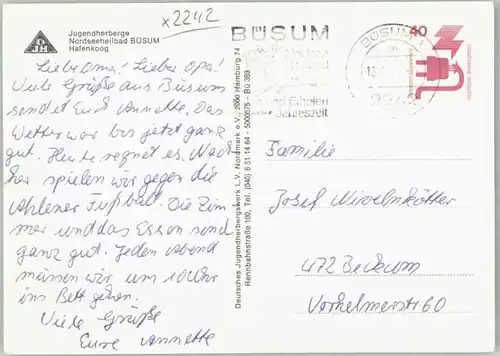 x2242
Jugendherberge
Nordseeheilbad BÜSUM
Hafenkoog
DJH
Liebe Oma! Lieber Opa!
Viele Grüße aus Büsum
sendet Euch Annette. Das
Wetter war bis jetzt ganz
gut. Heute regnet es. Nach
her spielen wir gegen die
Ahlener Fußball. Die Zim
mer und das Essen sind
ganz gut. Jeden Abend
müssen wir um 10 Uhr
ins Bett gehen.
Viele Grüße
Eure Annette
Deutsches Jugendherbergswerk L.V. Nordmark e.V., 2000 Hamburg 74
Rennbahnstraße 100, Tel. (040) 6 51 14 64 - 5000575 - BÜ 369
BÜSUM
und Erholen
Jahreszeit
BÜSUM
40
Familie
Josef Nivelnkötter
472 Beckum
Vorhelmerstr. 60